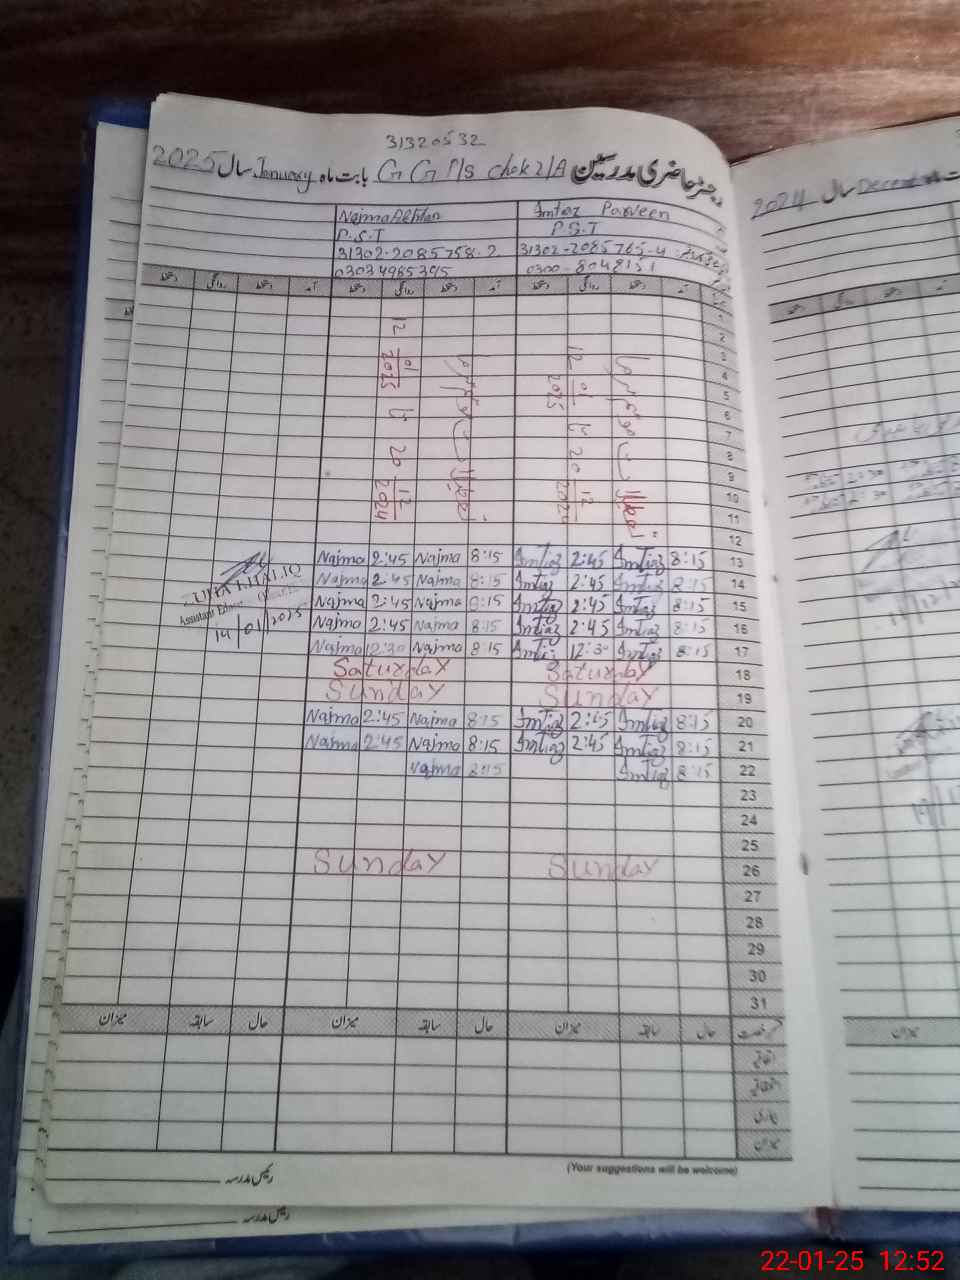 31320532
رجسٹر حاضری مدرسین G G P/S chak 2/A بابت ماہ January سال 2025
Imtiaz Parveen Najma Akhtar
P.S.T P.S.T
31302-2085765-4 31302-2085758-2
0300-8048151 03034985395
آمد دستخط روانگی دستخط آمد دستخط روانگی دستخط آمد دستخط روانگی دستخط
1
2
3
4
5
6
7
8
9
10
11
12
تعطیلات موسم سرما
20 12/2024 تا 12 01/2025
تعطیلات موسم سرما
20 12/2024 تا 12 01/2025
13 8:15 Imtiaz 2:45 Imtiaz 8:15 Najma 2:45 Najma
14 8:15 Imtiaz 2:45 Imtiaz 8:15 Najma 2:45 Najma
15 8:15 Imtiaz 2:45 Imtiaz 8:15 Najma 2:45 Najma
16 8:15 Imtiaz 2:45 Imtiaz 8:15 Najma 2:45 Najma
17 8:15 Imtiaz 12:30 Imtiaz 8:15 Najma 12:30 Najma
18 Saturday Saturday
19 Sunday Sunday
20 8:15 Imtiaz 2:45 Imtiaz 8:15 Najma 2:45 Najma
21 8:15 Imtiaz 2:45 Imtiaz 8:15 Najma 2:45 Najma
22 8:15 Imtiaz 8:15 Najma
23
24
25
26 Sunday Sunday
27
28
29
30
31
ZUHA KHALIQ
Assistant Education Officer
14/01/2025
حال سابقہ میزان حال سابقہ میزان حال سابقہ میزان
اتفاقیہ
میزان
(Your suggestions will be welcome)
رئیس مدرسہ
رئیس مدرسہ
December سال 2024
میزان
22-01-25 12:52